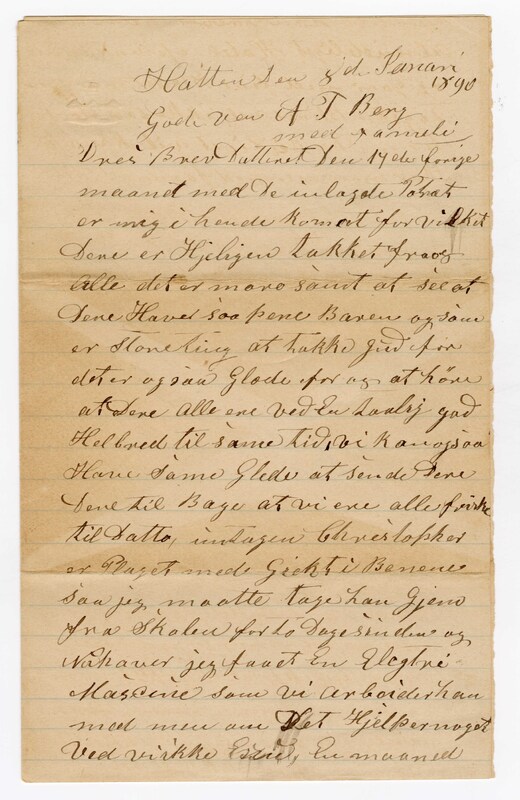 Hatten Den 8 de Janari
1890
Gode Ven A T Berg
med Fameli
Dres Brev Datteret Den 17 de forige
maaned med De inlagde Potrat
er mig i hende komat for vilket
Dere er Hjeligen takket fra os
Alle det er moro samt at see at
Dere Haver saa pene Baren og som
er store ting at takke Gud for
det er og saa Glæde for os at høre
at Dere Alle ere ved En taalig god
Helbred til same tid, vi kan ogsaa
Have same Glede at sende Dere
Dere til Bage at vi ere alle friske
til Datto, intagen Christopher
er Plaget med Giekt i Benene
saa jeg maatte tage han Hjem
fra Skolen for to Dage sinden og
Nu haver jeg faaet En Elegtri
Mascine som vi Arbeider han
med men om Det Hjelper noget
Ved vi ikke En maaned